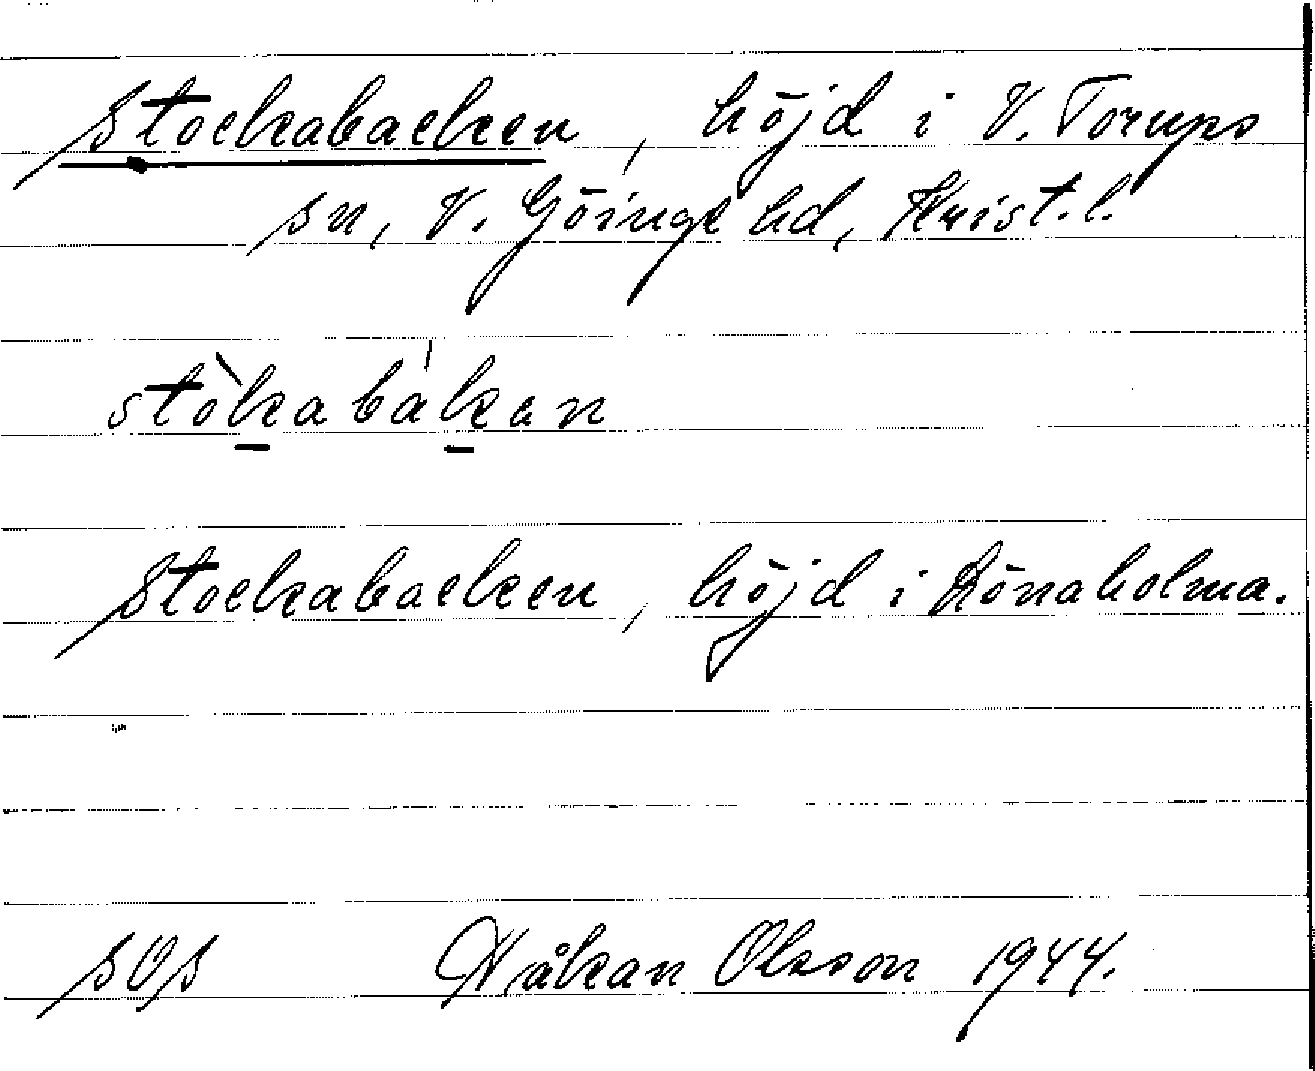 Stockabacken, höjd i V. Torups
sn, V. Göinge hd, Krist. l.
stòkabákan
Stockabacken, höjd i Rönaholma.
SOS Håkan Olsson 1944.